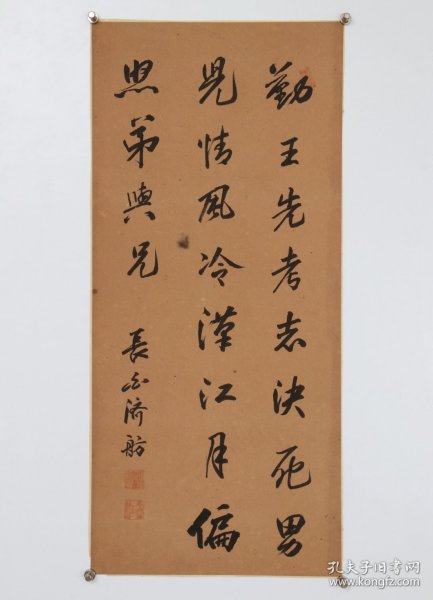 勤王先考志決死男
兒情風冷漢江月偏
照弟與兄
長 済舫
孔夫子旧书网
www.kongfz.com